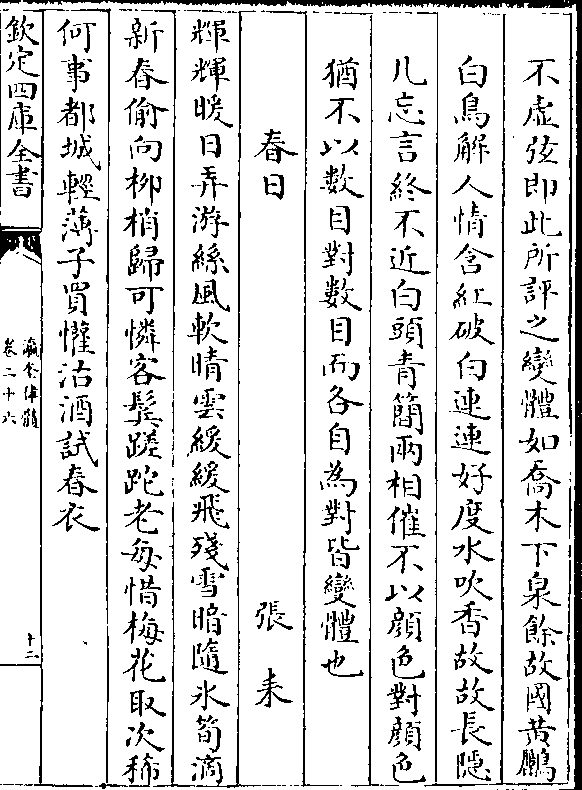 不虛弦即此所評之變體如喬木下泉餘故國黃鸝
白鳥解人情含紅破白連連好度水吹香故故長隱
几忘言終不近白頭青簡兩相催不以顔色對顔色
猶不以數目對數目而各自為對皆變體也
春日 張耒
輝輝暖日弄游絲風軟晴雲緩緩飛殘雪暗隨氷筍滴
新春偷向柳梢歸可憐客鬢蹉跎老每惜梅花取次稀
何事都城輕薄子買懽沽酒試春衣
欽定四庫全書
瀛奎律髓
卷二十六
十二